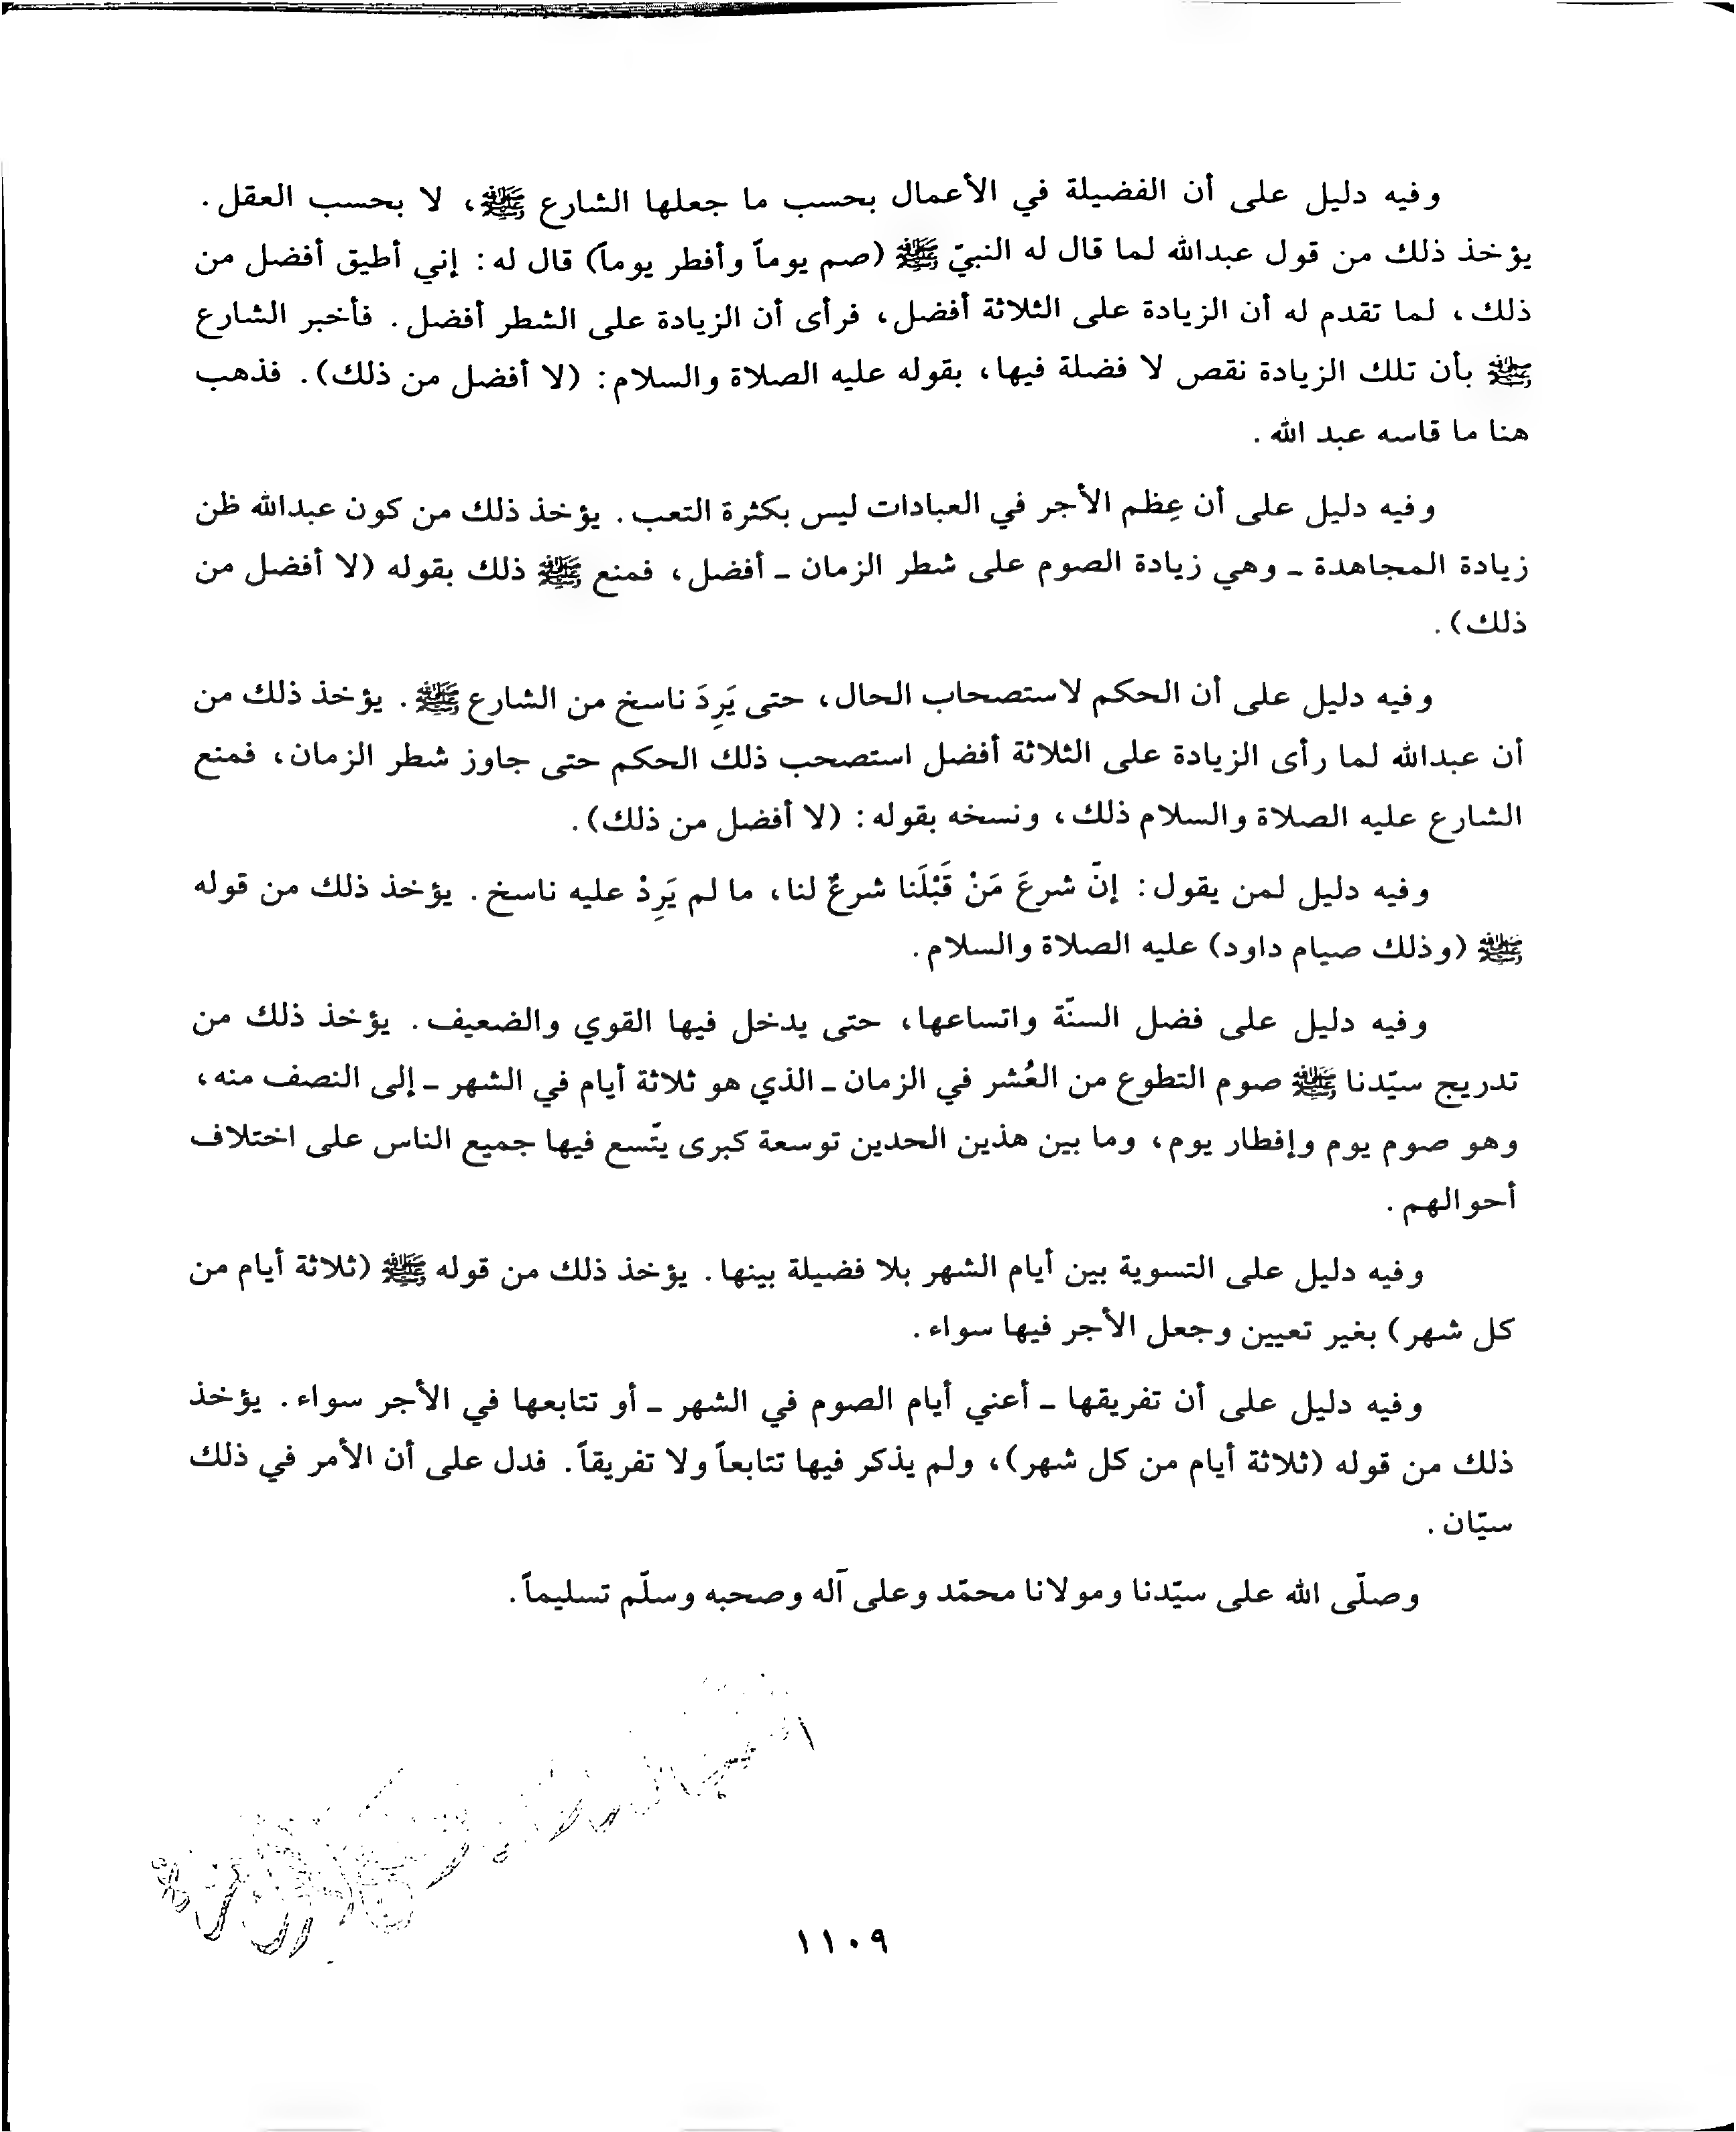 وفيه دليل على أن الفضيلة في الأعمال بحسب ما جعلها الشارع ﷺ، لا بحسب العقل.
يؤخذ ذلك من قول عبدالله لما قال له النبيّ ﷺ (صم يوماً وأفطر يوماً) قال له: إني أطيق أفضل من
ذلك، لما تقدم له أن الزيادة على الثلاثة أفضل، فرأى أن الزيادة على الشطر أفضل. فأخبر الشارع
ﷺ بأن تلك الزيادة نقص لا فضلة فيها، بقوله عليه الصلاة والسلام: (لا أفضل من ذلك). فذهب
هنا ما قاسه عبد الله.
وفيه دليل على أن عِظم الأجر في العبادات ليس بكثرة التعب. يؤخذ ذلك من كون عبدالله ظن
زيادة المجاهدة ـ وهي زيادة الصوم على شطر الزمان ـ أفضل، فمنع ﷺ ذلك بقوله (لا أفضل من
ذلك).
وفيه دليل على أن الحكم لاستصحاب الحال، حتى يَرِدَ ناسخ من الشارع ﷺ. يؤخذ ذلك من
أن عبدالله لما رأى الزيادة على الثلاثة أفضل استصحب ذلك الحكم حتى جاوز شطر الزمان، فمنع
الشارع عليه الصلاة والسلام ذلك، ونسخه بقوله: (لا أفضل من ذلك).
وفيه دليل لمن يقول: إنّ شرعَ مَنْ قَبْلَنا شرعٌ لنا، ما لم يَرِدْ عليه ناسخ. يؤخذ ذلك من قوله
ﷺ (وذلك صيام داود) عليه الصلاة والسلام.
وفيه دليل على فضل السنّة واتساعها، حتى يدخل فيها القوي والضعيف. يؤخذ ذلك من
تدريج سيّدنا ﷺ صوم التطوع من العُشر في الزمان ـ الذي هو ثلاثة أيام في الشهر ـ إلى النصف منه،
وهو صوم يوم وإفطار يوم، وما بين هذين الحدين توسعة كبرى يتّسع فيها جميع الناس على اختلاف
أحوالهم.
وفيه دليل على التسوية بين أيام الشهر بلا فضيلة بينها. يؤخذ ذلك من قوله ﷺ (ثلاثة أيام من
كل شهر) بغير تعيين وجعل الأجر فيها سواء.
وفيه دليل على أن تفريقها ـ أعني أيام الصوم في الشهر ـ أو تتابعها في الأجر سواء. يؤخذ
ذلك من قوله (ثلاثة أيام من كل شهر)، ولم يذكر فيها تتابعاً ولا تفريقاً. فدل على أن الأمر في ذلك
سيّان.
وصلّى الله على سيّدنا ومولانا محمّد وعلى آله وصحبه وسلّم تسليماً.
١١٠٩